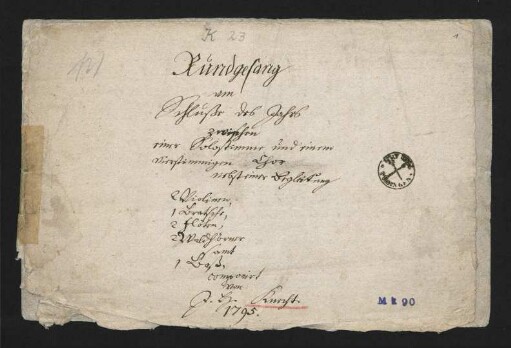 K 23
Rundgesang
am
Schluße des Jahrs
zwischen
einer Solostimme und einem
vierstimmigen Chor
nebst einer Begleitung
2 Violinen,
1 Bratsche,
2 Flöten,
2 Waldhörner
samt
1 Baß.
componirt
von
J. H. Knecht.
1795.
M k 90